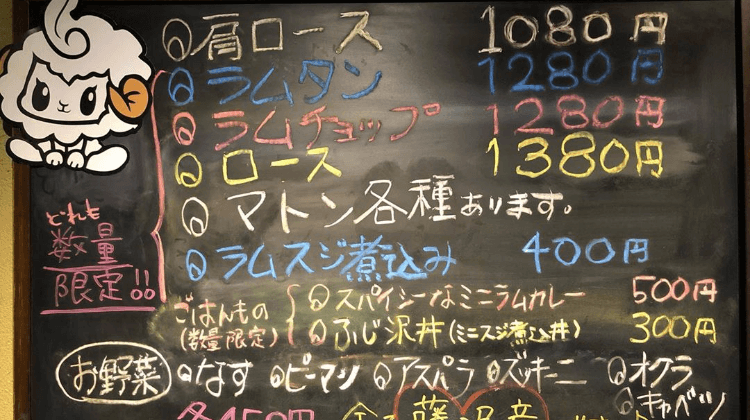 肩ロース 1080円
ラムタン 1280円
ラムチョップ 1280円
ロース 1380円
マトン各種あります。
どれも
数量
限定!!
ラムスジ煮込み 400円
ごはんもの
(数量限定)
スパイシーなミニラムカレー 500円
ふじ沢丼(ミニスジ煮込丼) 300円
お野菜 なす ピーマン アスパラ ズッキーニ オクラ
キャベツ
各450円
藤沢産